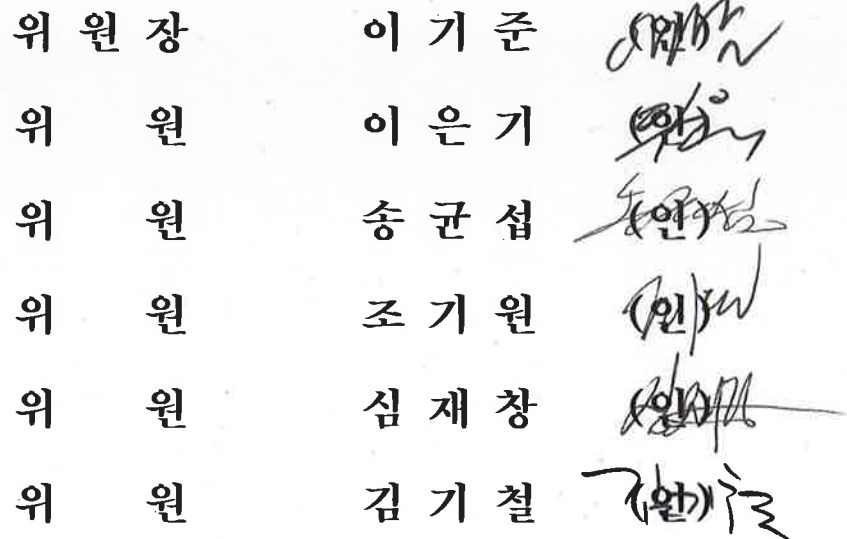 위 원 장 이 기 준 (인)
위 원 이 은 기 (인)
위 원 송 균 섭 (인)
위 원 조 기 원 (인)
위 원 심 재 창 (인)
위 원 김 기 철 (인)